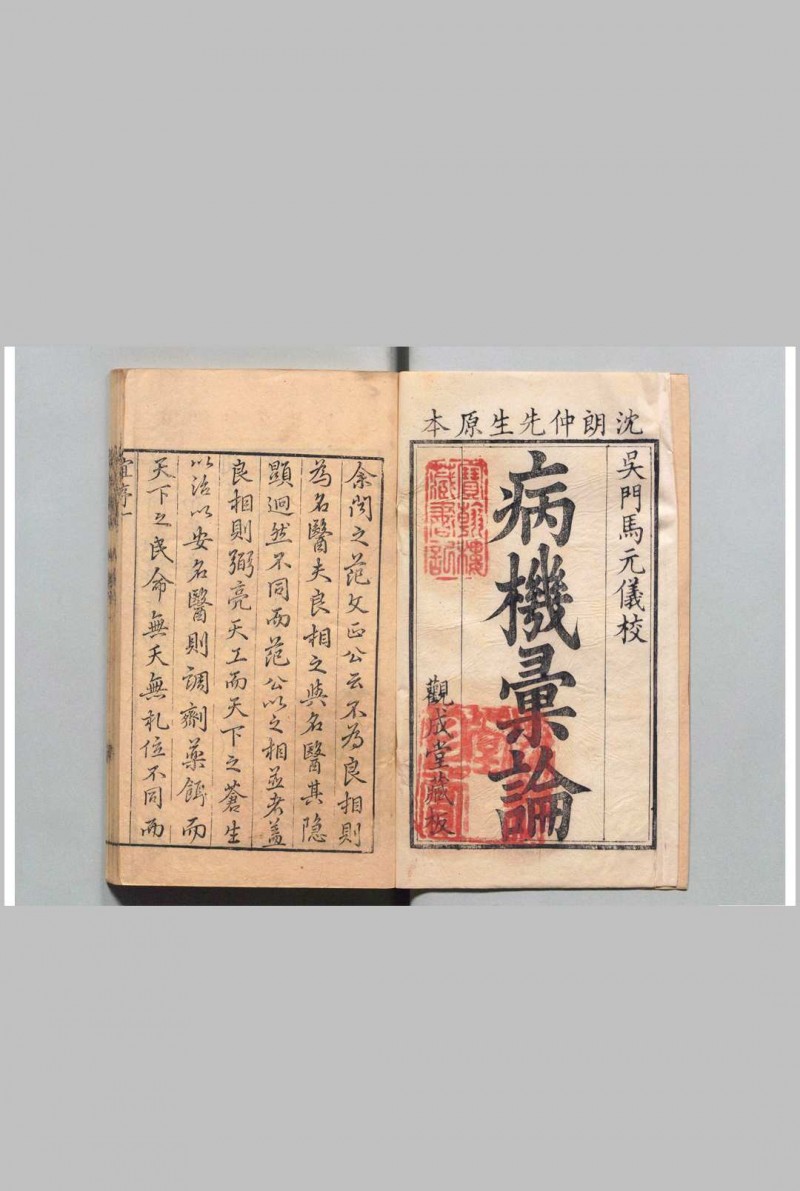 沈朗仲先生原本
吳門馬元儀校
病機彙論
觀成堂藏板
寶翰樓
藏書記
余聞之范文正公云不為良相則
為名醫夫良相之與名醫其隐
顯迥然不同而范公以之相並者盖
良相則弼亮天工而天下之蒼生
以治以安名醫則調劑藥餌而
天下之民命無夭無札位不同而